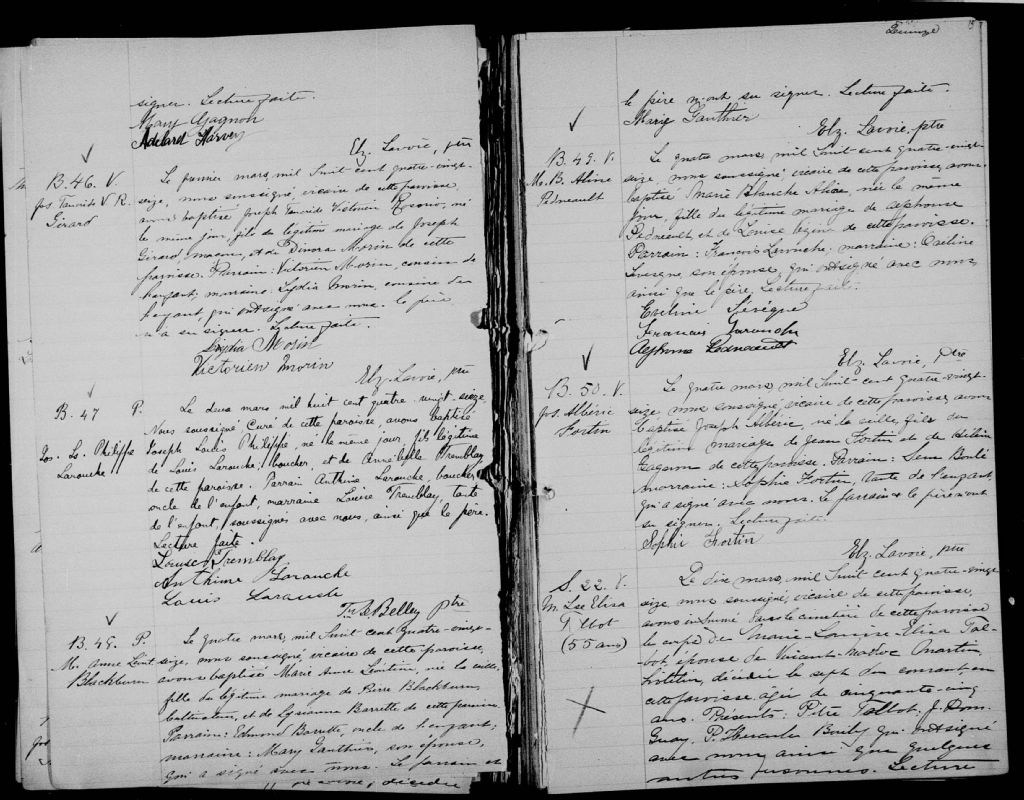 signer. Lecture faite.
Mary Gagnon
Adelard Harvey
Elz. Lavoie, ptre
B. 46. V.
Jos Tancride V. R.
Girard
Le premier mars, mil huit cent quatre-vingt-
seize, nous soussigné, vicaire de cette paroisse,
avons baptisé Joseph Tancride Victorien Rosario, né
le même jour, fils du légitime mariage de Joseph
Girard, macon, et de Dinora Morin de cette
paroisse. Parrain: Victorien Morin, cousin de
l'enfant; marraine: Lydia Morin, cousine de
l'enfant, qui ont signé avec nous. Le père
n'a su signer. Lecture faite.
Lydia Morin
Victorien Morin
Elz. Lavoie, ptre
B. 47 P.
Jos. Ls. Philippe
Larouche
Le deux mars mil huit cent quatre vingt seize,
Nous soussigné, Curé de cette paroisse, avons baptisé
Joseph Louis Philippe, né le même jour, fils légitime
de Louis Larouche, boucher, et de Annébelle Tremblay
de cette paroisse. Parrain Anthime Larouche, boucher,
oncle de l'enfant, marraine Louise Tremblay, tante
de l'enfant, soussignés avec nous, ainsi que le père.
Lecture faite.
Louise Tremblay
Anthime Larouche
Louis Larouche
Belley ptre
B. 48. P.
M. Anne Léint
Blackburn
Le quatre mars, mil huit cent quatre-vingt-
seize, nous soussigné, vicaire de cette paroisse,
avons baptisé Marie Anne Léintine, née la veille,
fille du légitime mariage de Pierre Blackburn,
cultivateur, et de Lysianne Barrette de cette paroisse.
Parrain: Edmond Barrette, oncle de l'enfant;
marraine: Mary Gauthier, son épouse,
qui a signé avec nous. Le parrain et
le père n'ont su signer. Lecture faite.
Marie Gauthier
Elz. Lavoie, ptre
B. 49. V.
M. B. Aline
Pedneault
Le quatre mars, mil huit cent quatre-vingt-
seize, nous soussigné, vicaire de cette paroisse, avons
baptisé Marie Blanche Aline, née le même
jour, fille du légitime mariage de Alphonse
Pedneault, et de Louise de cette paroisse.
Parrain: Francois Larouche, marraine: Eveline
son épouse, qui ont signé avec nous
ainsi que le père. Lecture faite.
Eveline
Francois Larouche
Alphonse Pedneault
Elz. Lavoie, ptre
B. 50. V.
Jos. Albéric
Fortin
Le quatre mars, mil huit cent quatre-vingt-
seize, nous soussigné, vicaire de cette paroisse, avons
baptisé Joseph Albéric, né la veille, fils du
légitime mariage de Jean Fortin et de
Gagnon de cette paroisse. Parrain:
marraine: Sophie Fortin, tante de l'enfant,
qui a signé avec nous. Le parrain et le père n'ont
su signer. Lecture faite.
Sophie Fortin
Elz. Lavoie, ptre
S. 22. V.
M. Lse Elisa
Talbot
(55 ans)
Le dix mars, mil huit cent quatre-vingt
seize, nous soussigné, vicaire de cette paroisse,
avons inhumé dans le cimetière de cette paroisse
le corps de Marie-Louise-Elisa Tal-
bot, épouse de Vincent Martin,
décédée le sept du courant, en
cette paroisse, agée de cinquante-cinq
ans. Présents: Pitre Talbot, J. Dom.
Guay, P. Boily qui ont signé
avec nous ainsi que quelques
autres personnes. Lecture